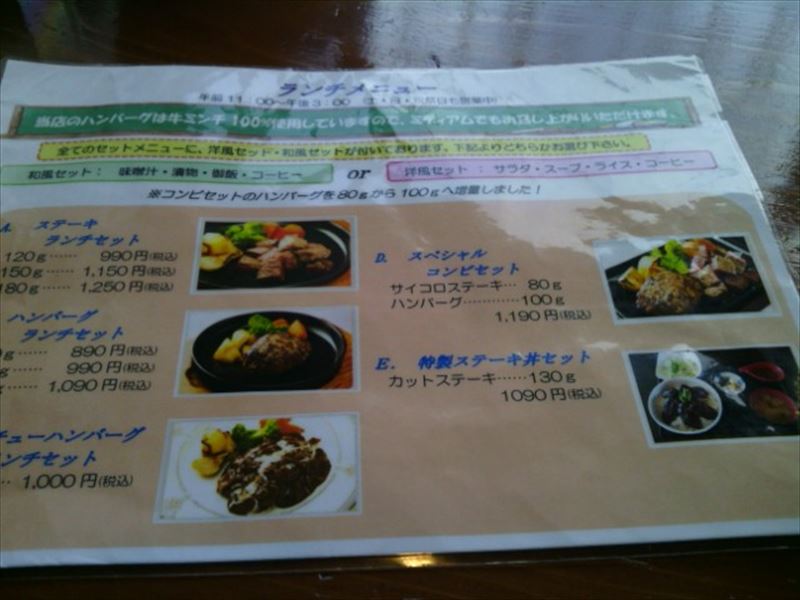 ランチメニュー
午前11:00～午後3:00 (土・日・祝祭日も営業中)
当店のハンバーグは牛ミンチ100%使用していますので、ミディアムでもお召し上がりいただけます。
全てのセットメニューに、洋風セット・和風セットが付いております。下記よりどちらかお選び下さい。
和風セット： 味噌汁・漬物・御飯・コーヒー or 洋風セット： サラダ・スープ・ライス・コーヒー
※コンビセットのハンバーグを80gから100gへ増量しました！
ステーキ
ランチセット
120g…… 990円(税込)
150g…… 1,150円(税込)
180g…… 1,250円(税込)
ハンバーグ
ランチセット
g…… 890円(税込)
…… 990円(税込)
…… 1,090円(税込)
チューハンバーグ
ンチセット
… 1,000円(税込)
D. スペシャル
コンビセット
サイコロステーキ… 80g
ハンバーグ…………100g
1,190円(税込)
E. 特製ステーキ丼セット
カットステーキ……130g
1090円(税込)